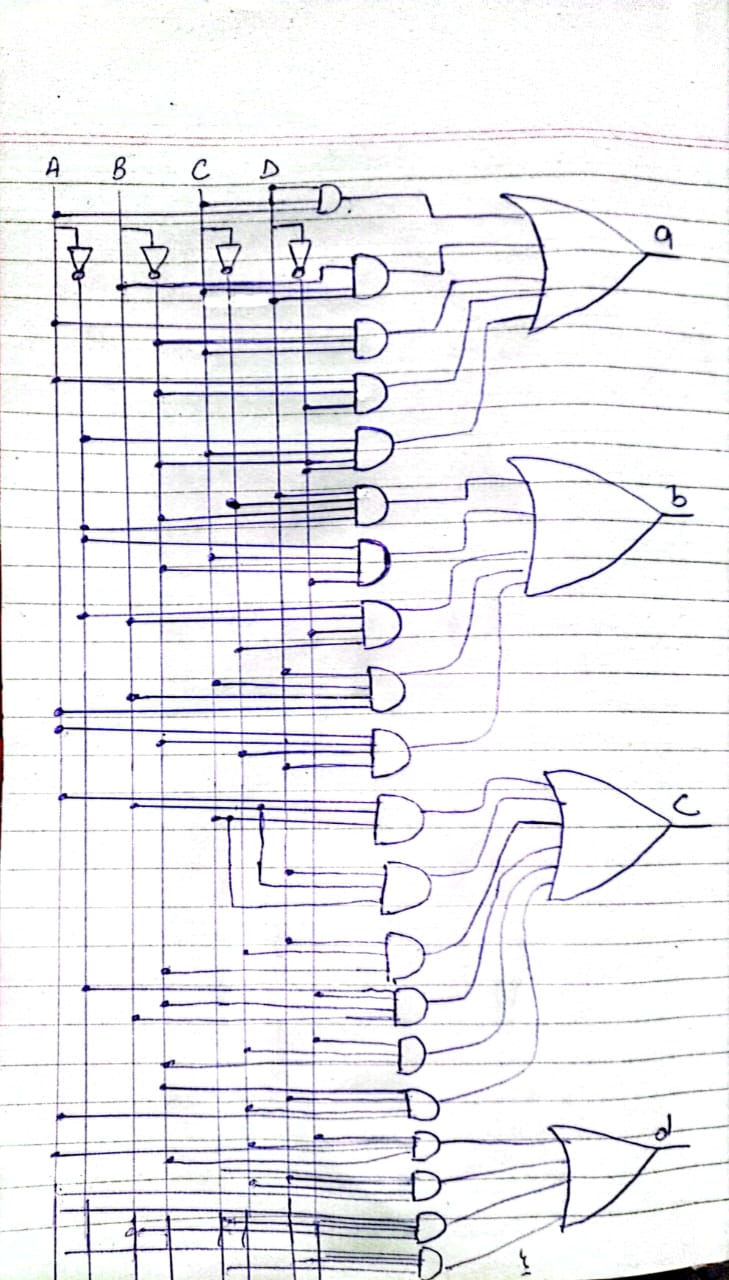 A B C D
a
b
C
d